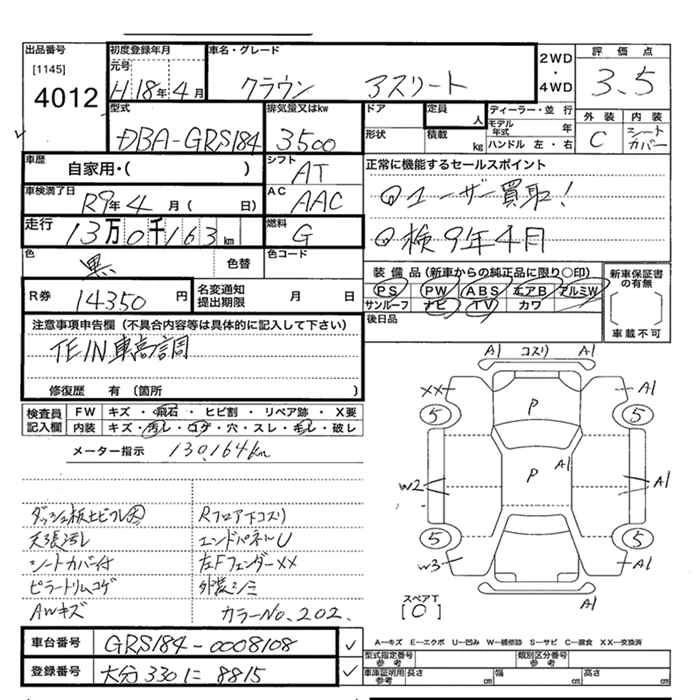 出品番号
[1145]
4012
初度登録年月
元号
H18年4月
車名・グレード
クラウン アスリート
2WD
・
4WD
評価点
3.5
型式
DBA-GRS184
排気量又はkw
3500
ドア
形状
定員
人
積載
kg
ディーラー・並 行
モデル年式 年
ハンドル 左・右
外装
C
内装
シートカバー
車歴
自家用・( )
シフト
AT
車検満了日
R9年4月( 日)
AC
AAC
走行
13万0千163km
燃料
G
色
黒
色替
色コード
正常に機能するセールスポイント
◎ユーザー買取!
◎検9年4月
R券
14350円
名変通知
提出期限
月 日
装備品(新車からの純正品に限り○印)
PS PW ABS エアB アルミW
サンルーフ ナビ TV カワ
後日品
新車保証書
の有無
車載不可
注意事項申告欄(不具合内容等は具体的に記入して下さい)
TEIN車高調
修復歴 有(箇所 )
検査員
記入欄
FW キズ・飛石・ヒビ割・リペア跡・X要
内装 キズ・汚レ・コゲ・穴・スレ・毛レ・破レ
メーター指示 130,164km
ダッシュ板土ビフレ大
天張汚レ
シートカバー付
ピラートリムコゲ
AWキズ
Rフロア下コスリ
エンドパネルU
左FフェンダーXX
外装シミ
カラーNo,202.
A1 コスリ A1
XX A1
5 5
P
P
A1
W2 A1
5 5
W3 A1
A1
スペアT
[0]
A―キズ E―エクボ U―凹み W―補修跡 S―サビ C―腐食 XX―交換済
車台番号
GRS184-0008108
登録番号
大分330に8815
型式指定番号
参考
類別区分番号
参考
車庫証明用
参考
長さ
cm
幅
cm
高さ
cm